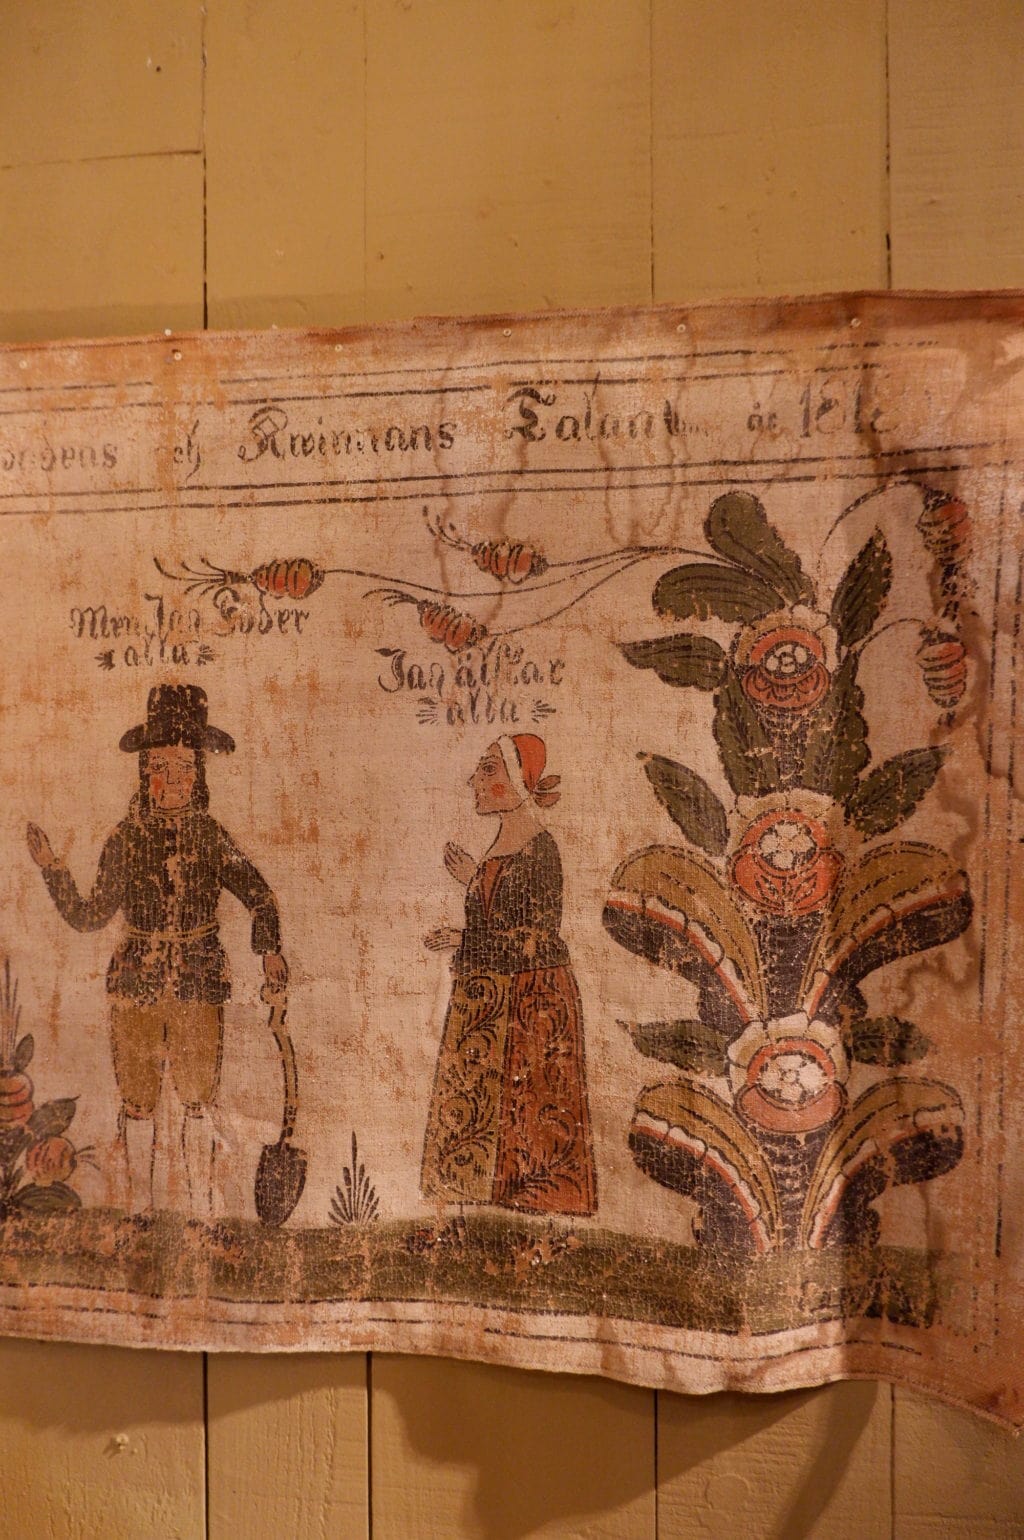 och Kwinnans Talant år
Men Jag Föder
alla
Jag älskar
alla